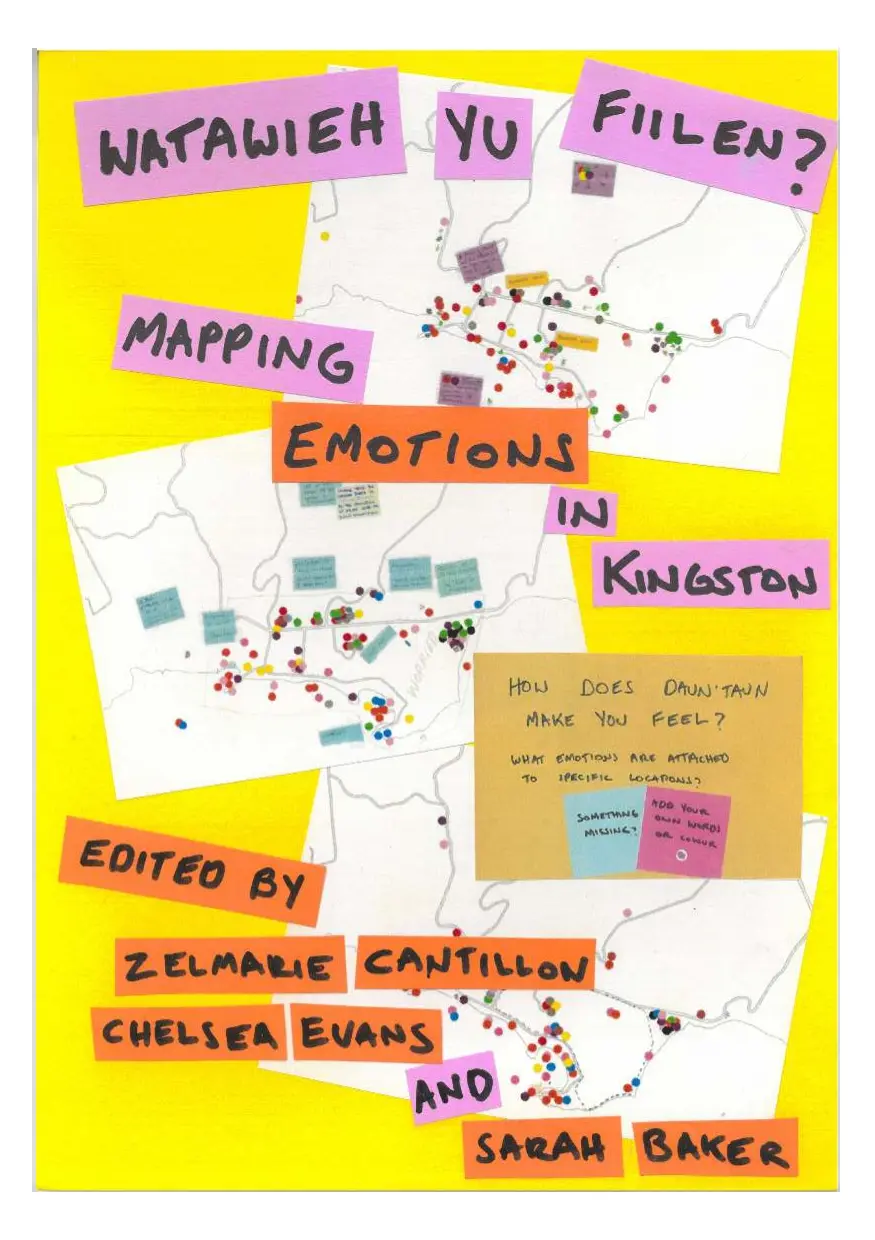 WATAWIEH YU FIILEN?
MAPPING
EMOTIONS
IN
KINGSTON
WORKING
HOW DOES DAUN'TAUN
MAKE YOU FEEL?
WHAT EMOTIONS ARE ATTACHED
TO SPECIFIC LOCATIONS?
SOMETHING
MISSING?
ADD YOUR
OWN WORDS
OR COLOUR
EDITED BY
ZELMARIE CANTILLON
CHELSEA EVANS
AND
SARAH BAKER